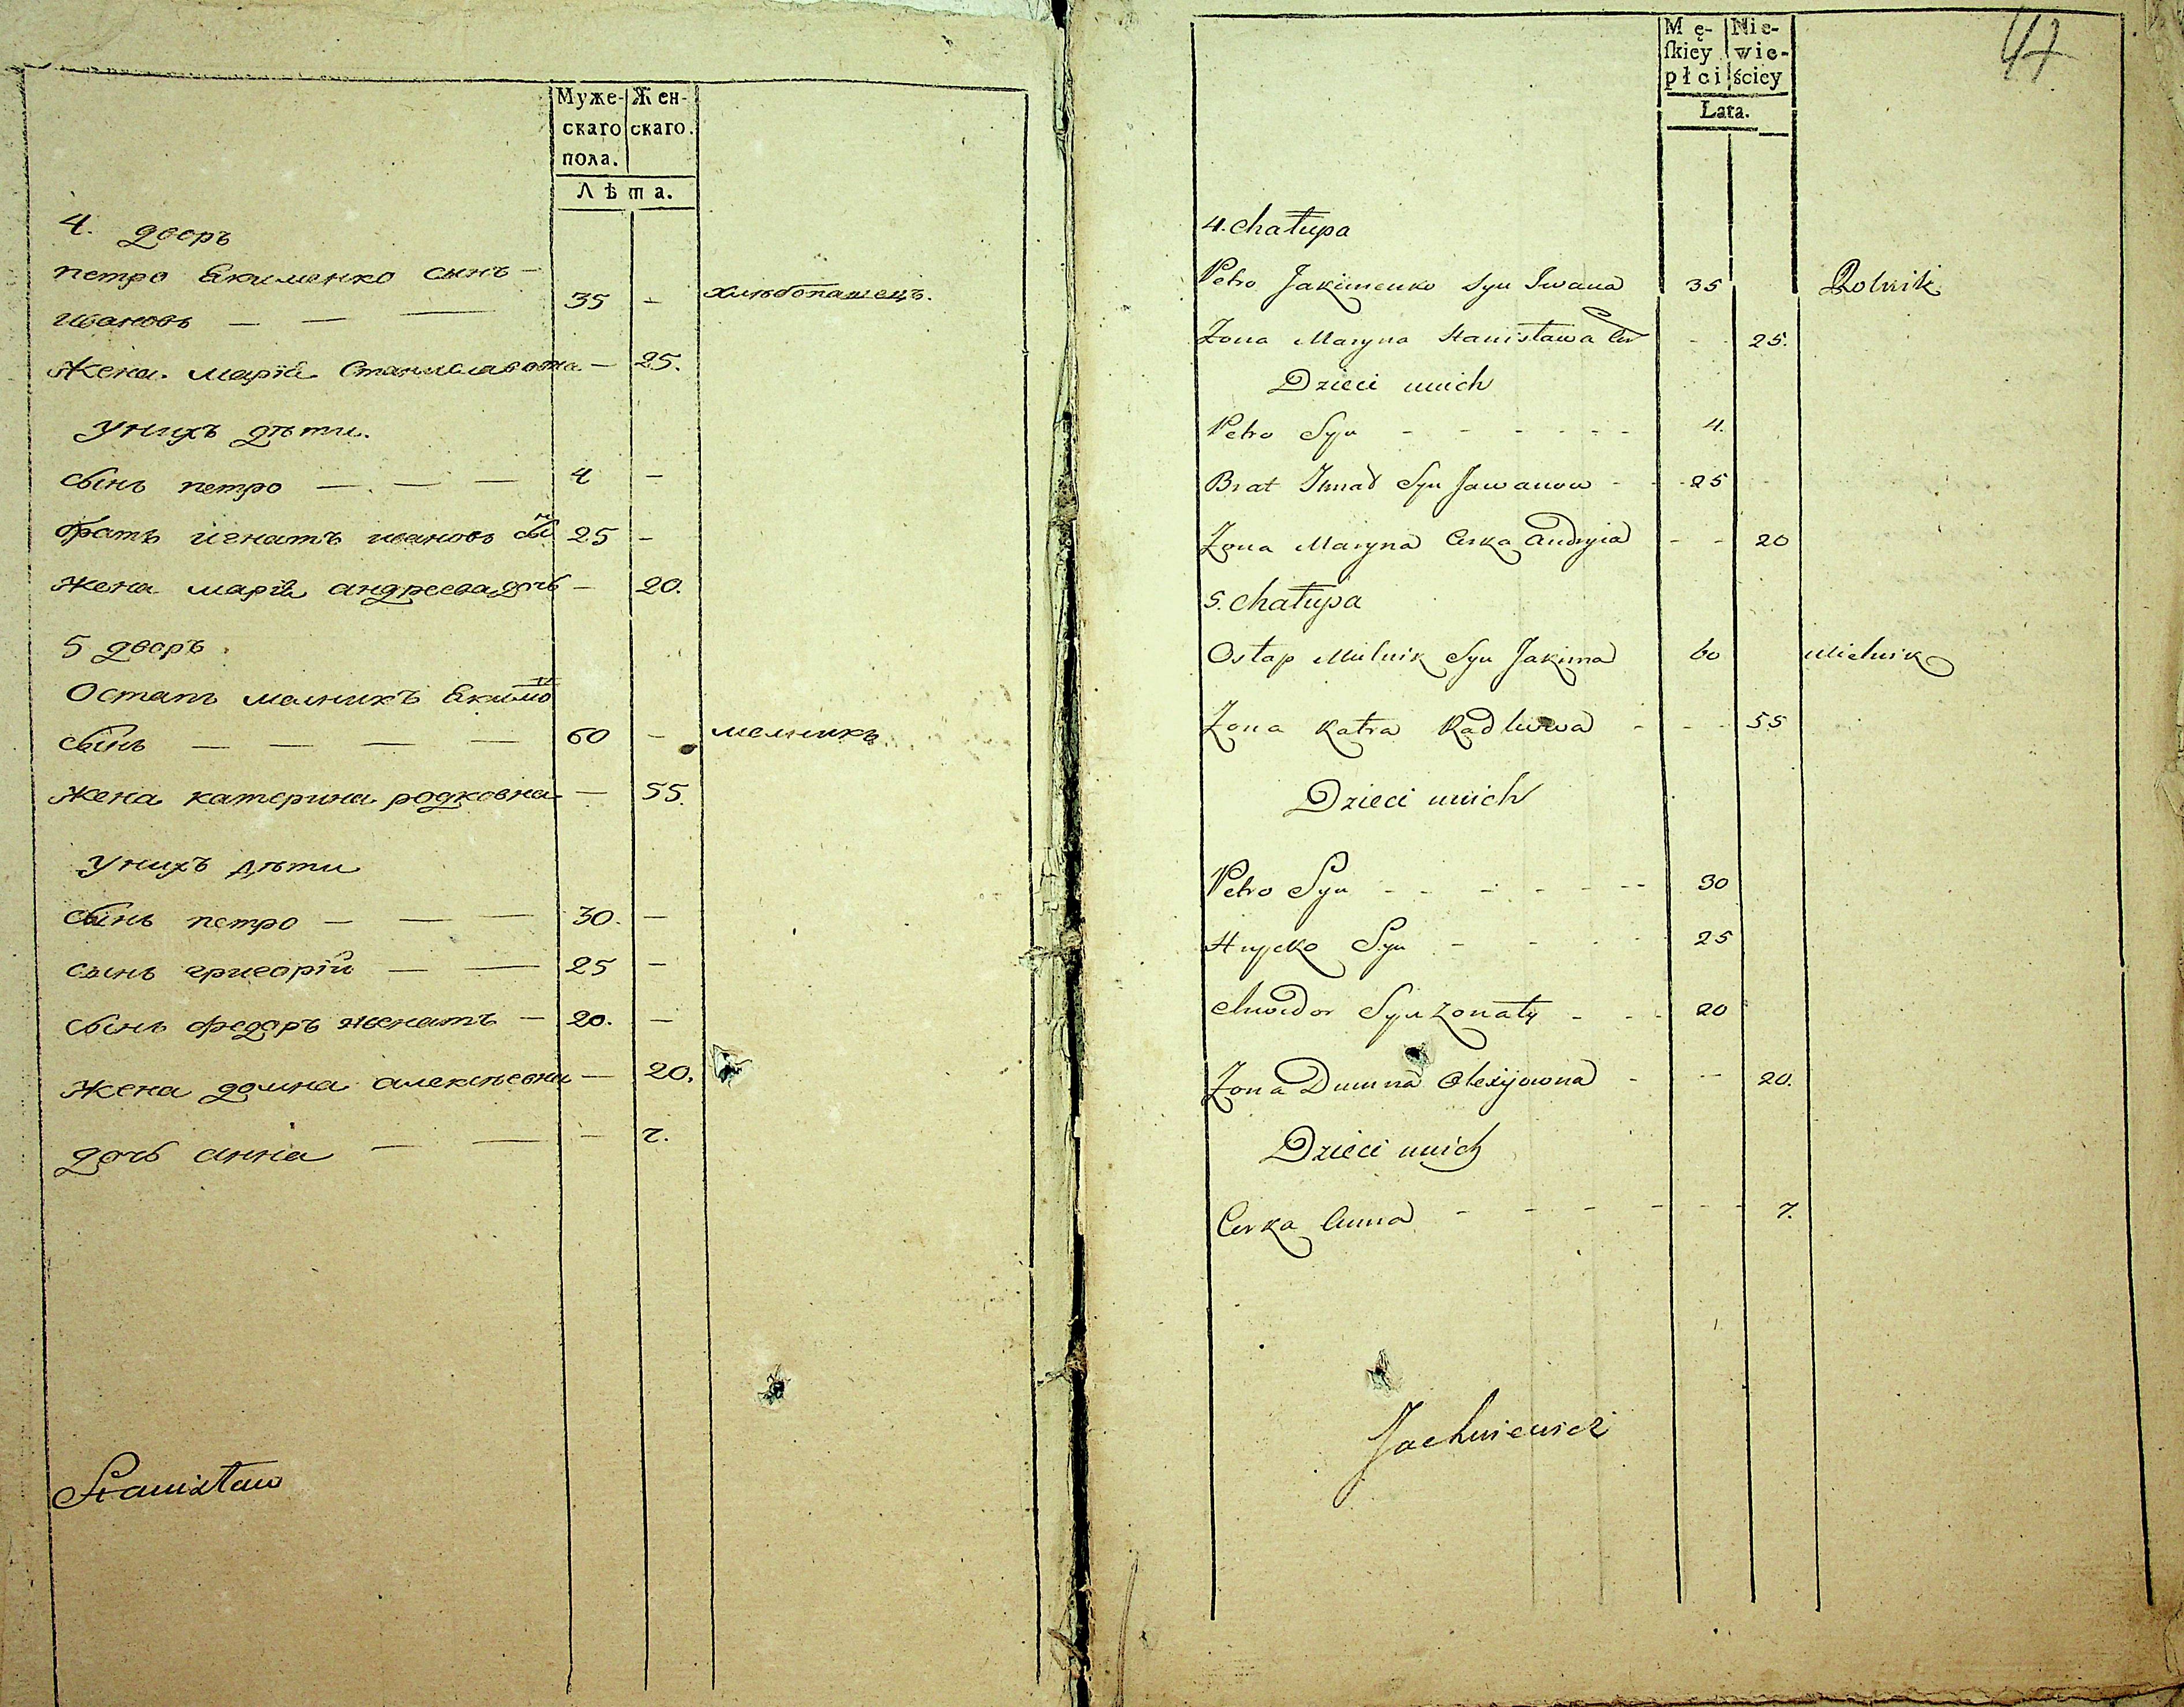 Муже- Жен-
скаго скаго.
пола.
Лѣта.
4. дворъ
петро Екименко сынъ —
ивановъ — — — 35 — хлѣбопашецъ.
жена. марія Станиславовна — 25.
унихъ дѣти.
сынъ петро — — — 4 —
братъ игнатъ ивановъ сы 25 —
жена марія андреева дочь — 20.
5 дворъ
Остапъ мелникъ Екимо
сынъ — — — — 60 — мелникъ
жена катерина родковна — 55.
унихъ дѣти
сынъ петро — — — 30. —
сынъ григорій — — 25 —
сынъ федоръ женатъ — 20. —
жена домна алексѣевна — 20.
дочь анна — — — 7.
Stanisław
47
Mę- Nie-
ſkiey wie-
płci ściey
Lata.
4. Chałupa
Petro Jakimenko Syn Iwana 35 Rolnik
Zona Maryna Stanisława Cór - 25.
Dzieci unich
Petro Syn - - - - - - 4.
Brat Ihnad Syn Jawanow - - 25
Zona Maryna Crka Andryia - - 20
5. Chałupa
Ostap Mielnik Syn Jakima 60 Mielnik
Zona Katra - - - 55
Dzieci unich
Petro Syn - - - - - - 30
Hrycko Syn - - - - 25
Chwedor Syn Zonaty - - - 20
Zona Dumna Olexijowna - - 20.
Dzieci unich
Crka Anna - - - - - - 7.
Jachniewicz